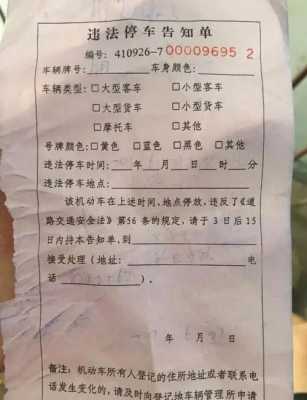 违法停车告知单
编号: 410926-7 00009695 2
车辆牌号: 车身颜色:
车辆类型: □大型客车 □小型客车
□大型货车 □小型货车
□摩托车 □其他
号牌颜色: □黄色 □蓝色 □黑色 □其他
违法停车时间: 年 月 日 时 分
违法停车地点:
该机动车在上述时间、地点停放,违反了《道
路交通安全法》第56条的规定,请于3日后15
日内持本告知单,到
接受处理(地址: 电
话 )。
年 6月 日
备注: 机动车所有人登记的住所地址或者联系电
话发生变化的,请及时向登记地车辆管理所申请